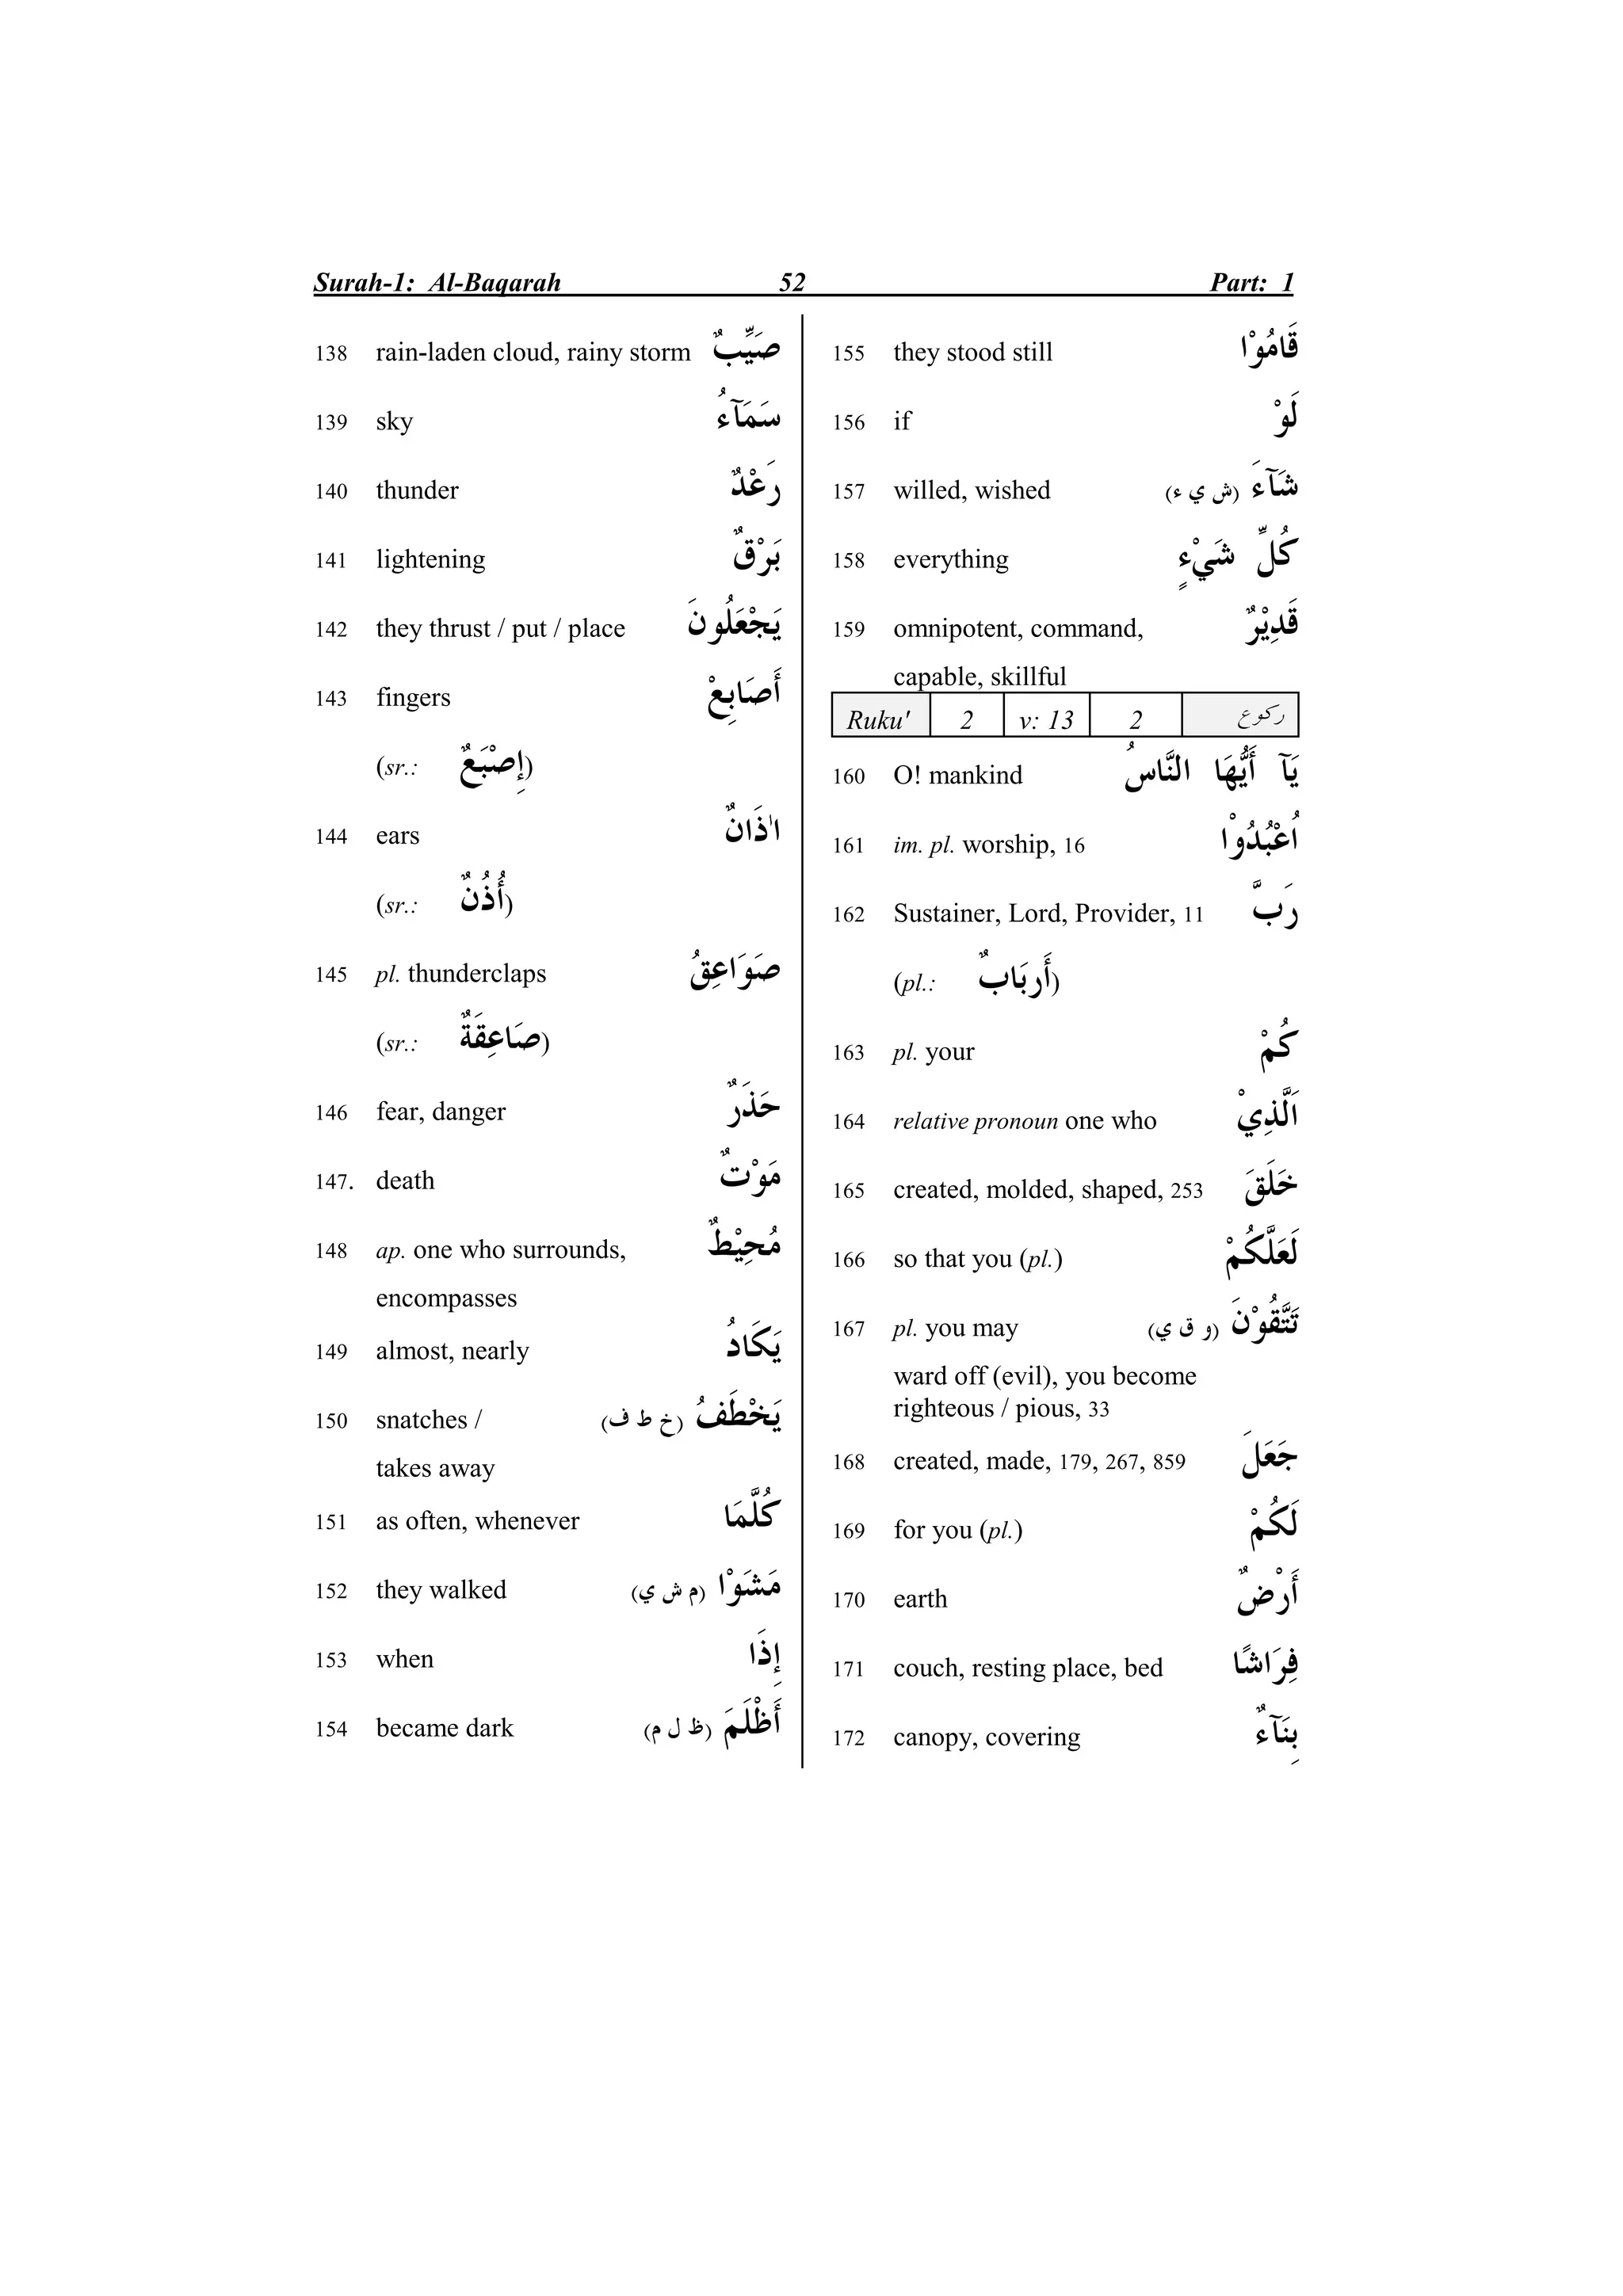 Surah-1: Al-Baqarah 52 Part: 1
138 rain-laden cloud, rainy storm صَيِّبٌ
139 sky سَمَآءُ
140 thunder رَعْدٌ
141 lightening بَرْقٌ
142 they thrust / put / place يَجْعَلُونَ
143 fingers أَصَابِعْ
(sr.: إِصْبَعٌ)
144 ears اٰذَانٌ
(sr.: أُذُنٌ)
145 pl. thunderclaps صَوَاعِقُ
(sr.: صَاعِقَةٌ)
146 fear, danger حَذَرٌ
147. death مَوْتٌ
148 ap. one who surrounds, مُحِيْطٌ
encompasses
149 almost, nearly يَكَادُ
150 snatches / يَخْطَفُ (خ ط ف)
takes away
151 as often, whenever كُلَّمَا
152 they walked مَشَوْا (م ش ي)
153 when إِذَا
154 became dark أَظْلَمَ (ظ ل م)
155 they stood still قَامُوْا
156 if لَوْ
157 willed, wished شَآءَ (ش ي ء)
158 everything كُلِّ شَيْءٍ
159 omnipotent, command, قَدِيْرٌ
capable, skillful
Ruku' 2 v: 13 2 ركوع
160 O! mankind يَآ أَيُّهَا النَّاسُ
161 im. pl. worship, 16 اُعْبُدُوْا
162 Sustainer, Lord, Provider, 11 رَبَّ
(pl.: أَربَابٌ)
163 pl. your كُمْ
164 relative pronoun one who اَلَّذِيْ
165 created, molded, shaped, 253 خَلَقَ
166 so that you (pl.) لَعَلَّكُمْ
167 pl. you may تَتَّقُوْنَ (و ق ي)
ward off (evil), you become
righteous / pious, 33
168 created, made, 179, 267, 859 جَعَلَ
169 for you (pl.) لَكُمْ
170 earth أَرْضٌ
171 couch, resting place, bed فِرَاشًا
172 canopy, covering بِنَآءٌ